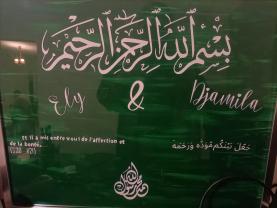 بِسْمِ ٱللَّهِ ٱلرَّحْمَٰنِ ٱلرَّحِيمِ
Ely & Djamila
et Il a mis entre vous de l'affection et
de la bonté.
جَعَلَ بَيْنَكُم مَّوَدَّةً وَرَحْمَةً